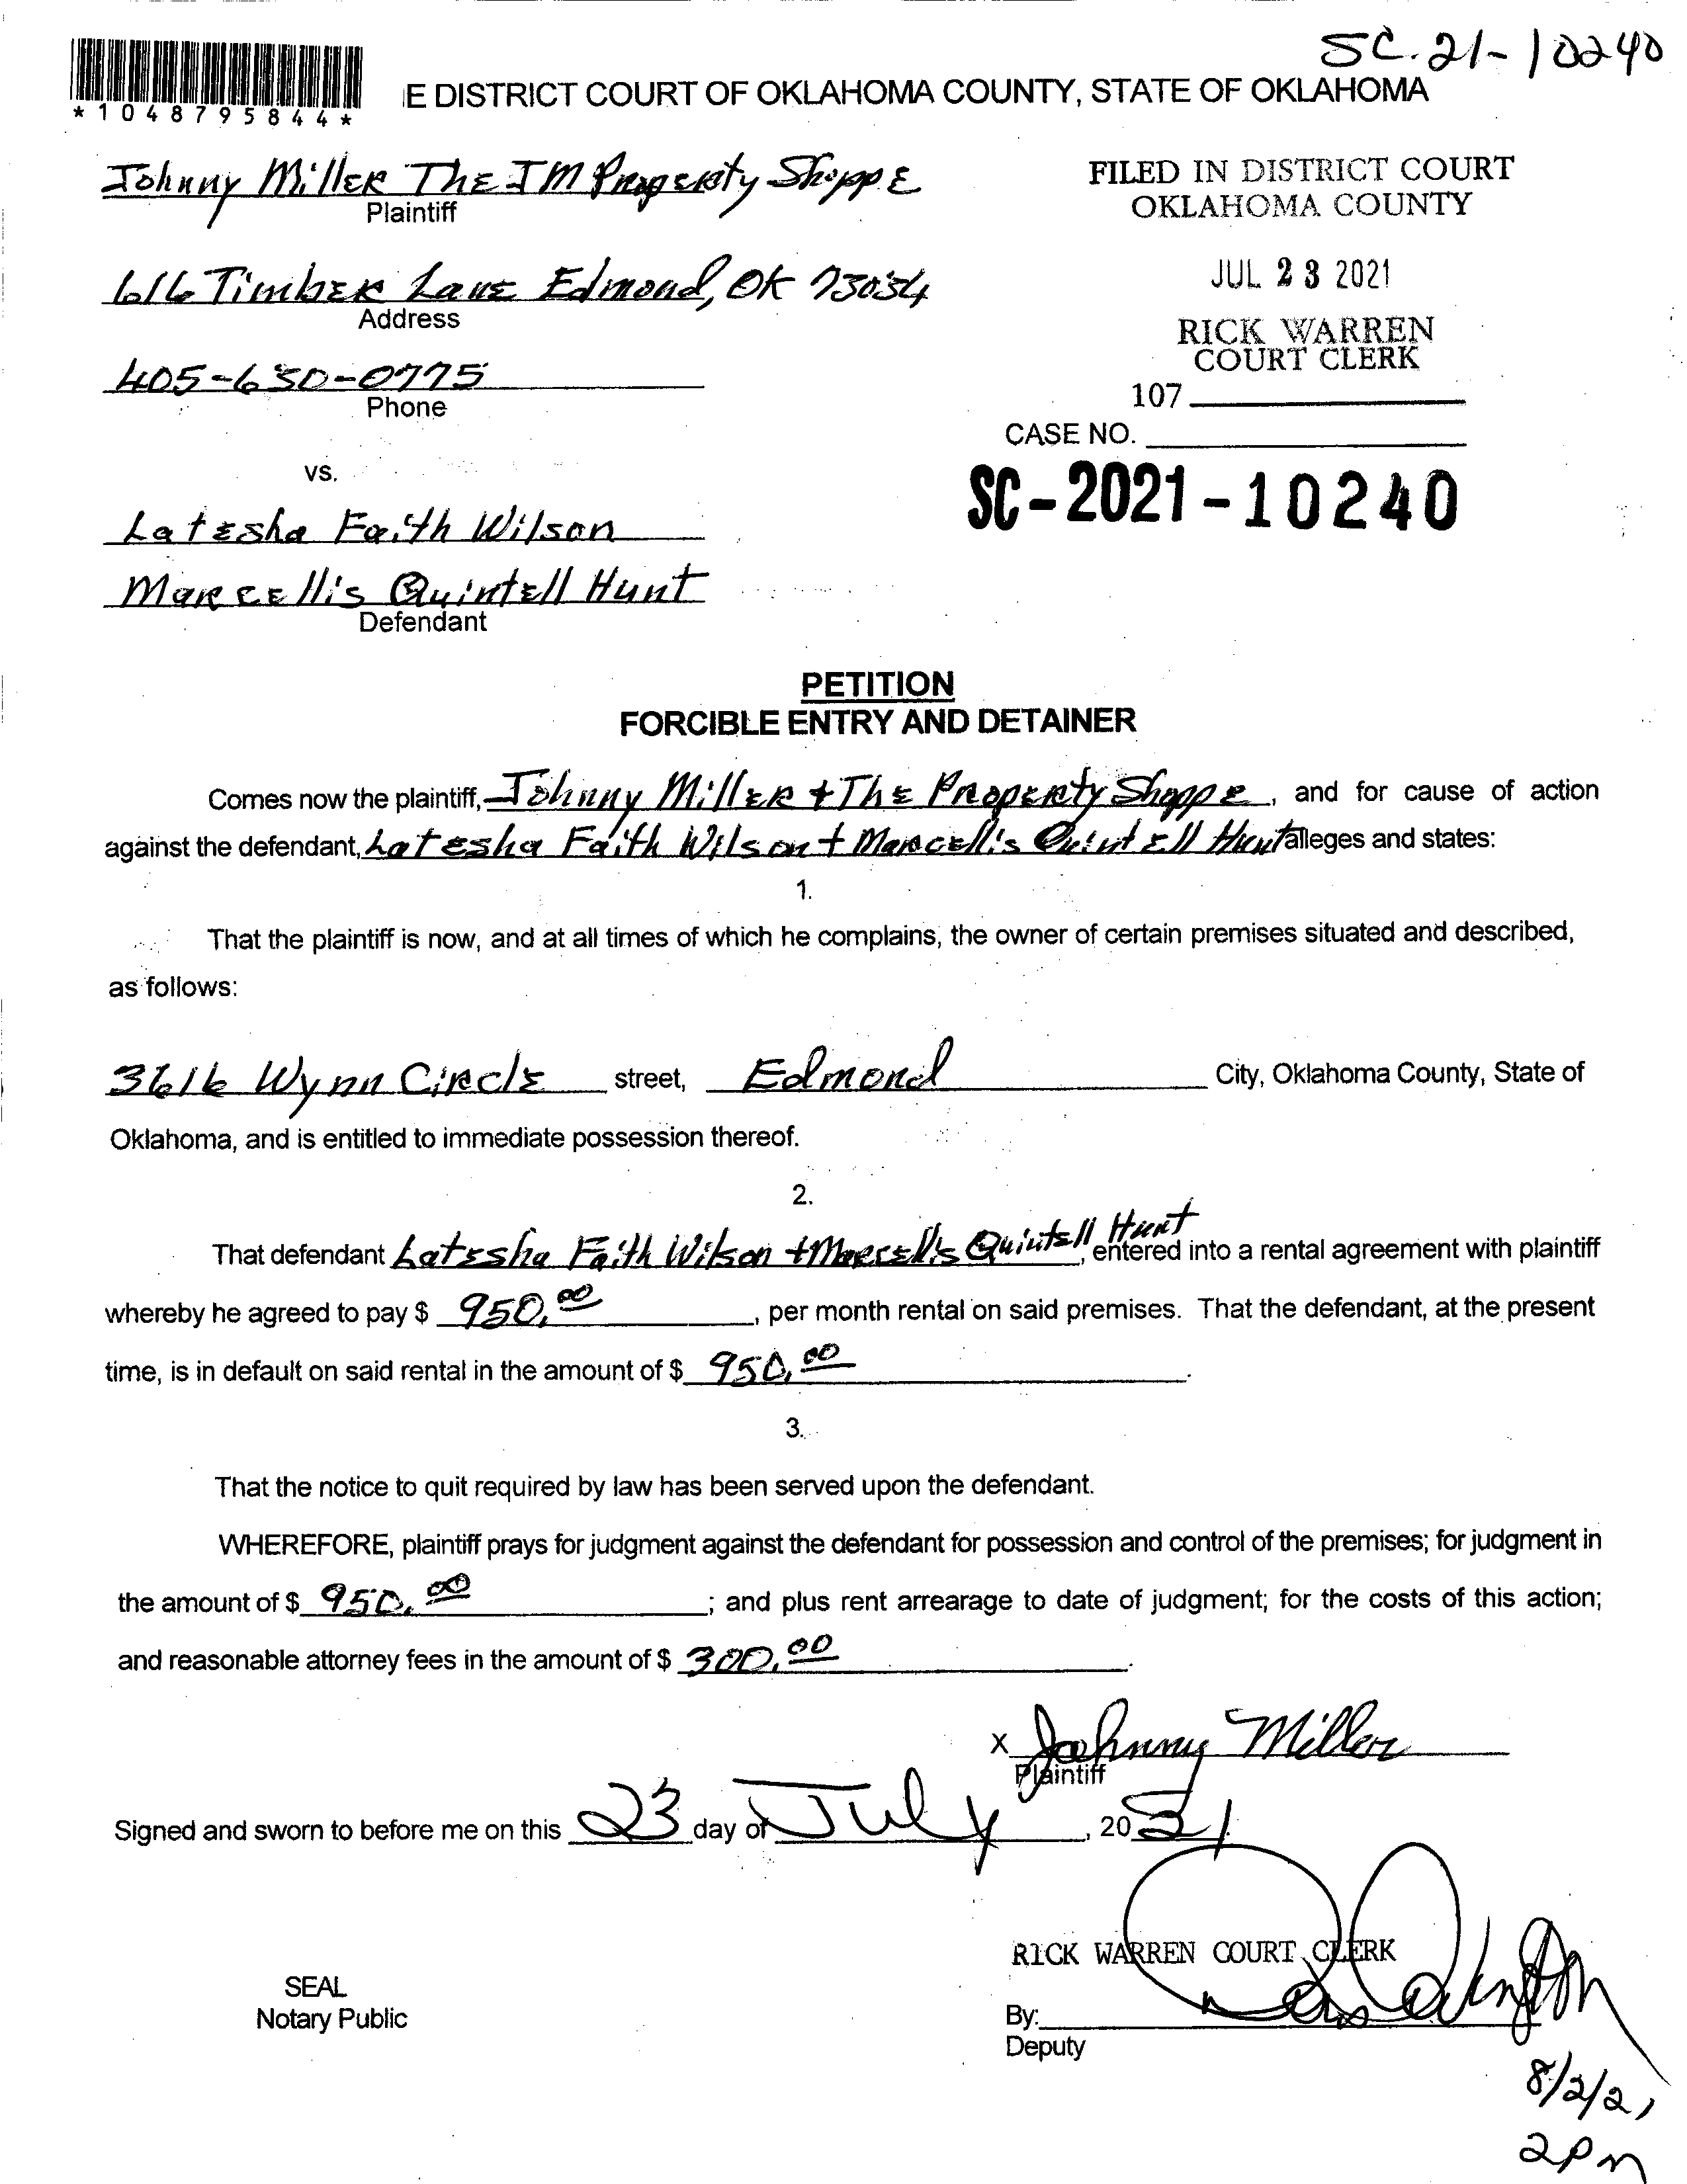 SC-21-10240
*1048795844*
E DISTRICT COURT OF OKLAHOMA COUNTY, STATE OF OKLAHOMA
Johnny Miller The JM Property Shoppe
Plaintiff
FILED IN DISTRICT COURT
OKLAHOMA COUNTY
616 Timber Lane Edmond, OK 73034
Address
JUL 23 2021
RICK WARREN
COURT CLERK
405-630-0775
Phone
107
CASE NO.
vs.
SC-2021-10240
Latesha Faith Wilson
Marcellis Quintell Hunt
Defendant
PETITION
FORCIBLE ENTRY AND DETAINER
Comes now the plaintiff, Johnny Miller + The Property Shoppe, and for cause of action
against the defendant, Latesha Faith Wilson + Marcellis Quintell Hunt alleges and states:
1.
That the plaintiff is now, and at all times of which he complains, the owner of certain premises situated and described,
as follows:
3616 Wynn Circle street, Edmond City, Oklahoma County, State of
Oklahoma, and is entitled to immediate possession thereof.
2.
That defendant Latesha Faith Wilson + Marcellis Quintell Hunt, entered into a rental agreement with plaintiff
whereby he agreed to pay $ 950.00, per month rental on said premises. That the defendant, at the present
time, is in default on said rental in the amount of $ 950.00.
3.
That the notice to quit required by law has been served upon the defendant.
WHEREFORE, plaintiff prays for judgment against the defendant for possession and control of the premises; for judgment in
the amount of $ 950.00; and plus rent arrearage to date of judgment; for the costs of this action;
and reasonable attorney fees in the amount of $ 300.00.
X Johnny Miller
Plaintiff
Signed and sworn to before me on this 23 day of July, 2021.
RICK WARREN COURT CLERK
SEAL
Notary Public
By:
Deputy
8/2/21
2pm